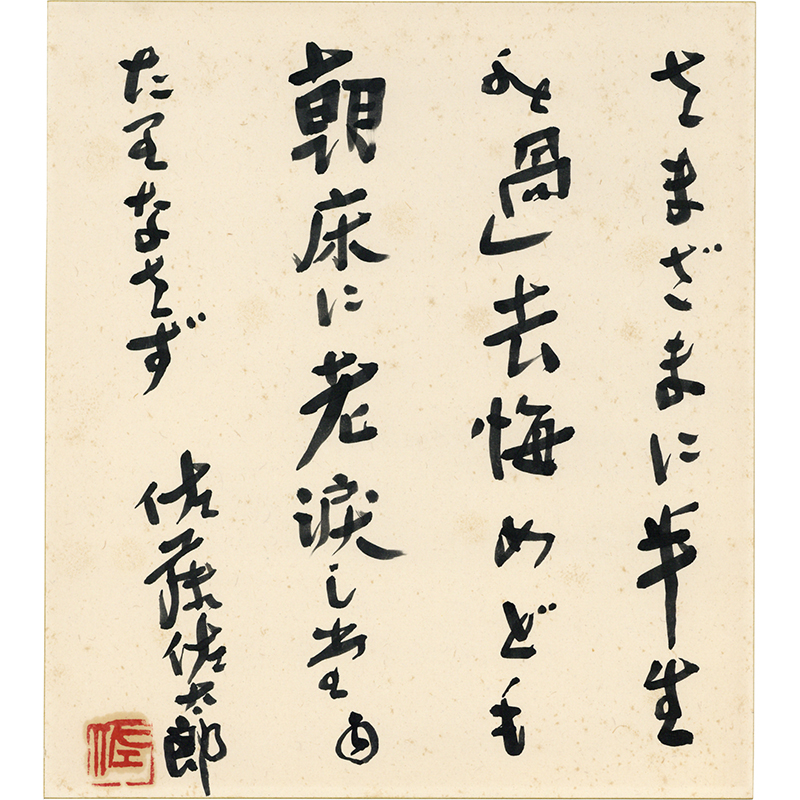 さまざまに半生
の過去悔めども
朝床に老涙し
なさず
佐藤佐太郎
佐